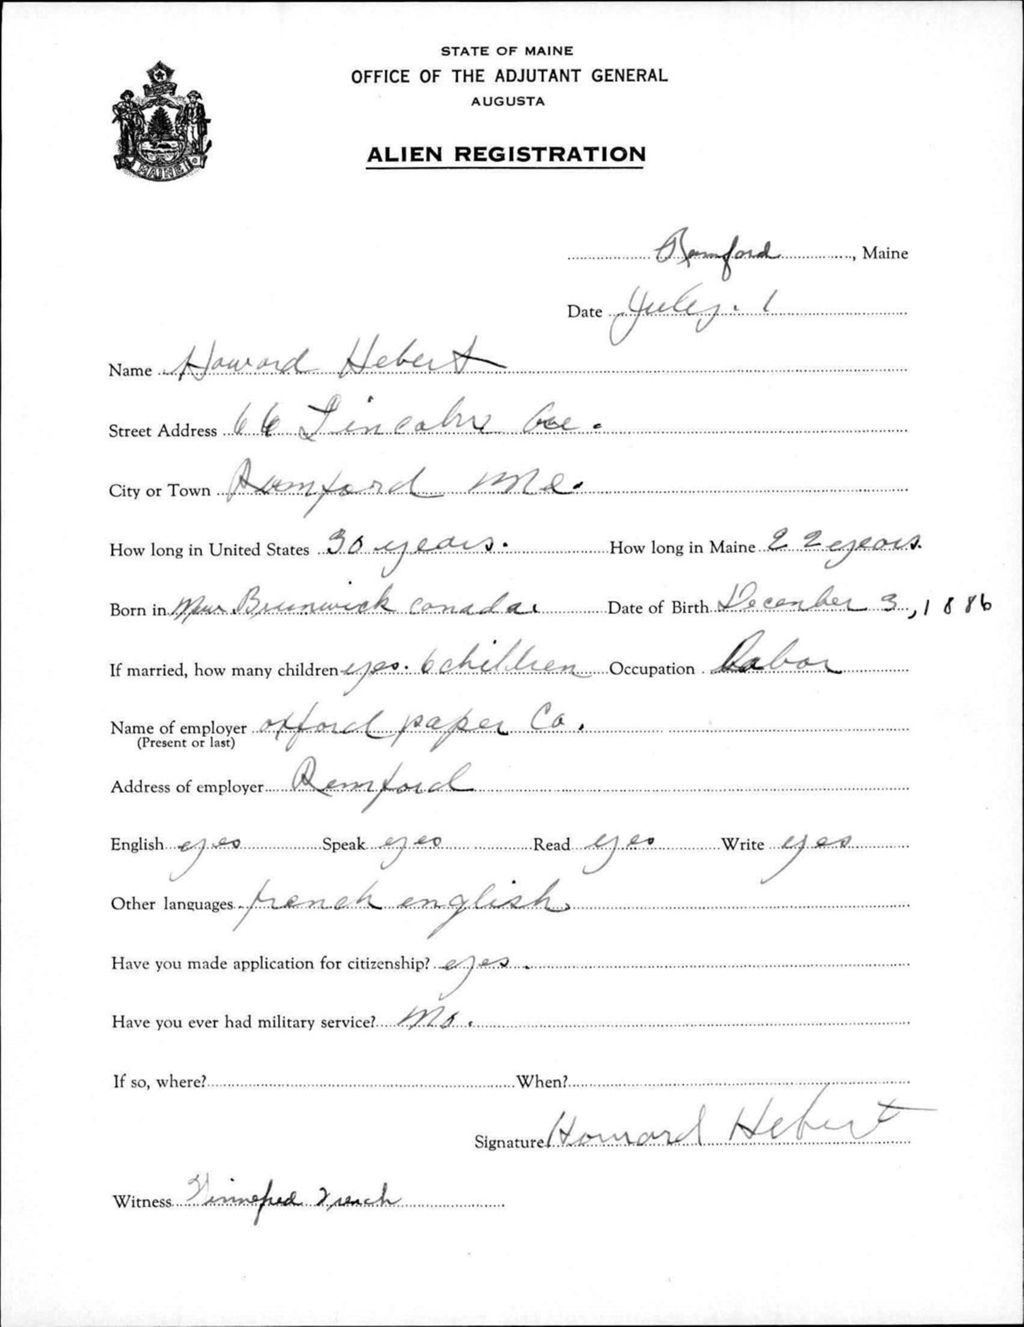 STATE OF MAINE
OFFICE OF THE ADJUTANT GENERAL
AUGUSTA
ALIEN REGISTRATION
MAINE
Rumford, Maine
Date July. 1
Name Howard Hebert
Street Address 66 Lincoln Ave.
City or Town Rumford Me.
How long in United States 30 years. How long in Maine 22 years.
Born in New Brunwick Canada. Date of Birth December 3, 1886
If married, how many children yes. 6 children Occupation Labor
Name of employer oxford paper Co.
(Present or last)
Address of employer Rumford
English yes Speak yes Read yes Write yes
Other languages french english.
Have you made application for citizenship? yes.
Have you ever had military service? No.
If so, where? When?
Signature Howard Hebert
Witness Winnefred French